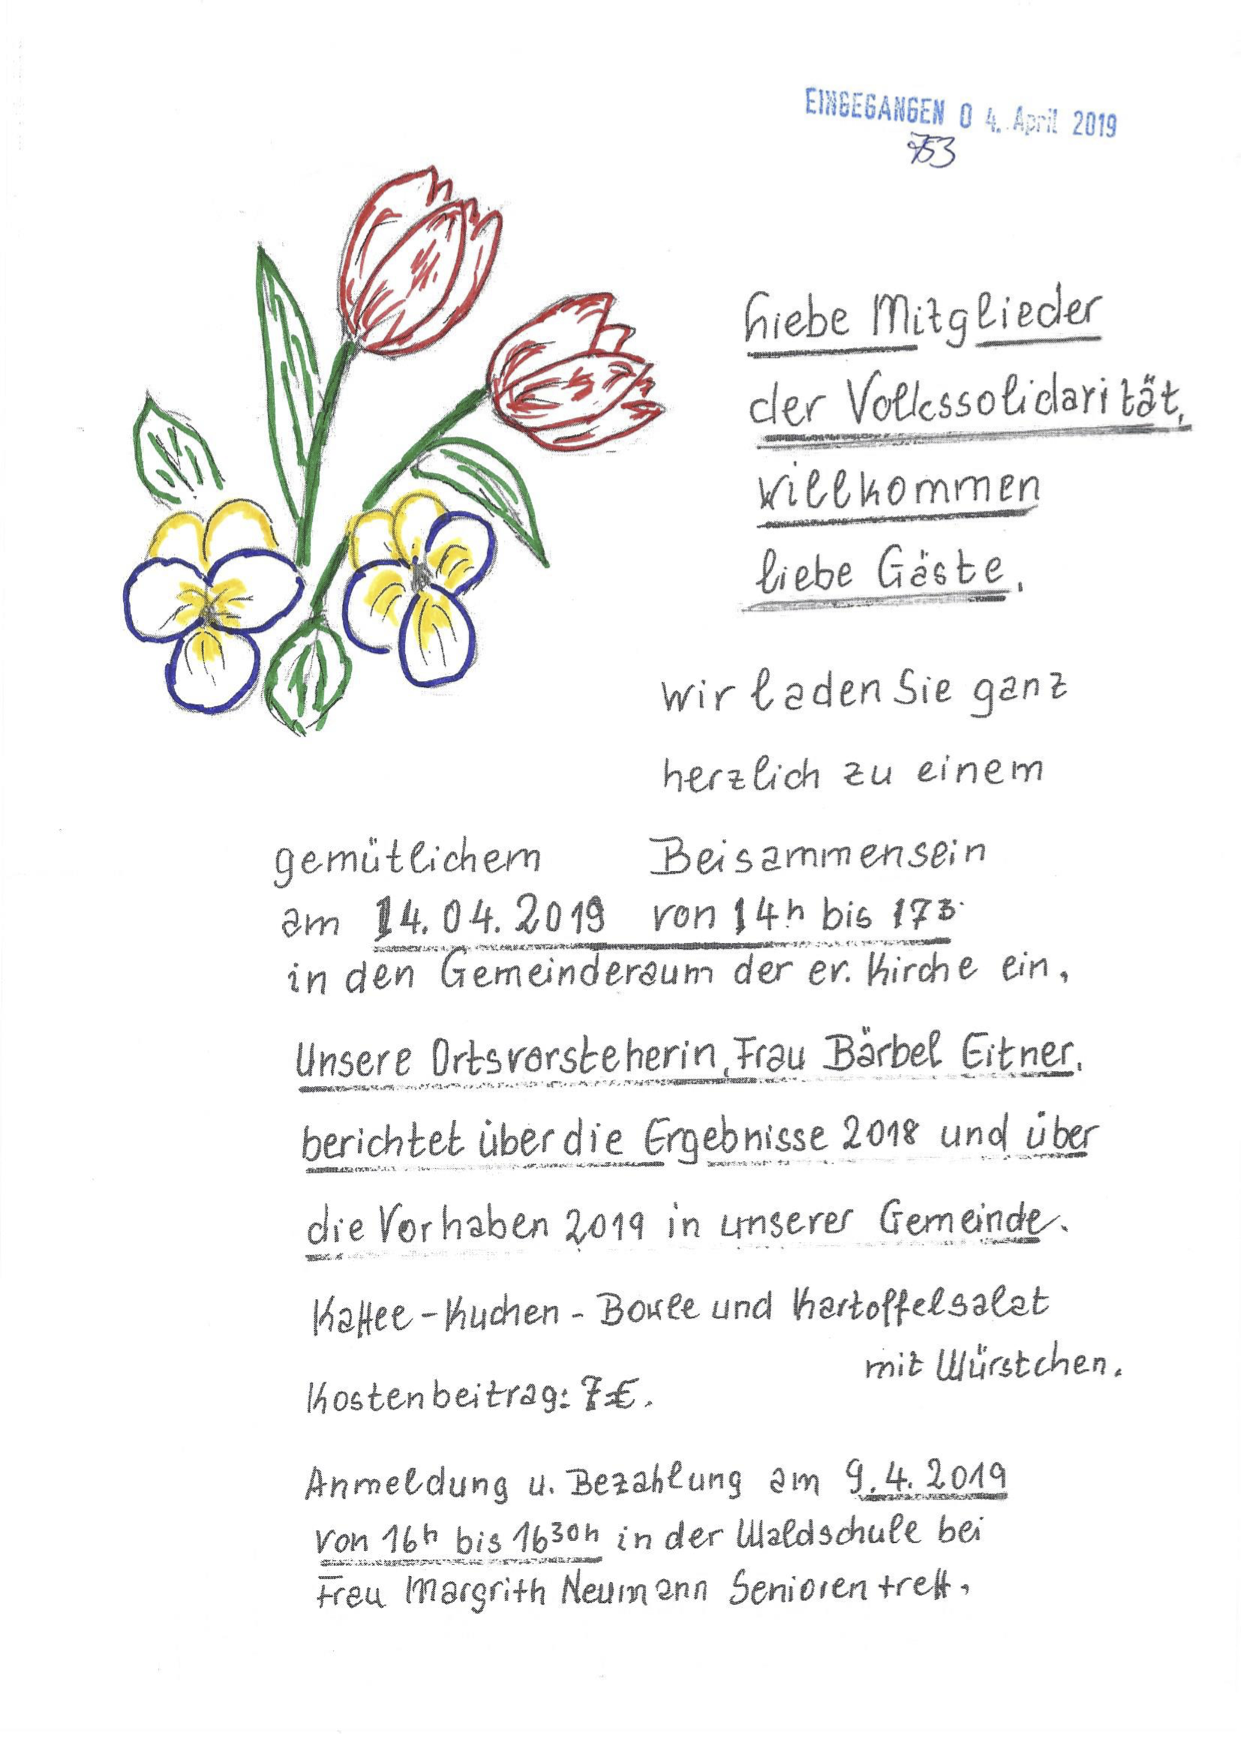 EINGEGANGEN 0 4. April 2019
753
Liebe Mitglieder
der Volkssolidarität,
willkommen
liebe Gäste.
wir laden Sie ganz
herzlich zu einem
gemütlichem Beisammensein
am 14.04.2019 von 14h bis 17
in den Gemeinderaum der ev. Kirche ein,
Unsere Ortsvorsteherin, Frau Bärbel Eitner,
berichtet über die Ergebnisse 2018 und über
die Vorhaben 2019 in unserer Gemeinde.
Kaffee - Kuchen - Bowle und Kartoffelsalat
mit Würstchen.
Kostenbeitrag: 7€.
Anmeldung u. Bezahlung am 9.4.2019
von 16h bis 1630h in der Waldschule bei
Frau Margrith Neumann Seniorentreff.